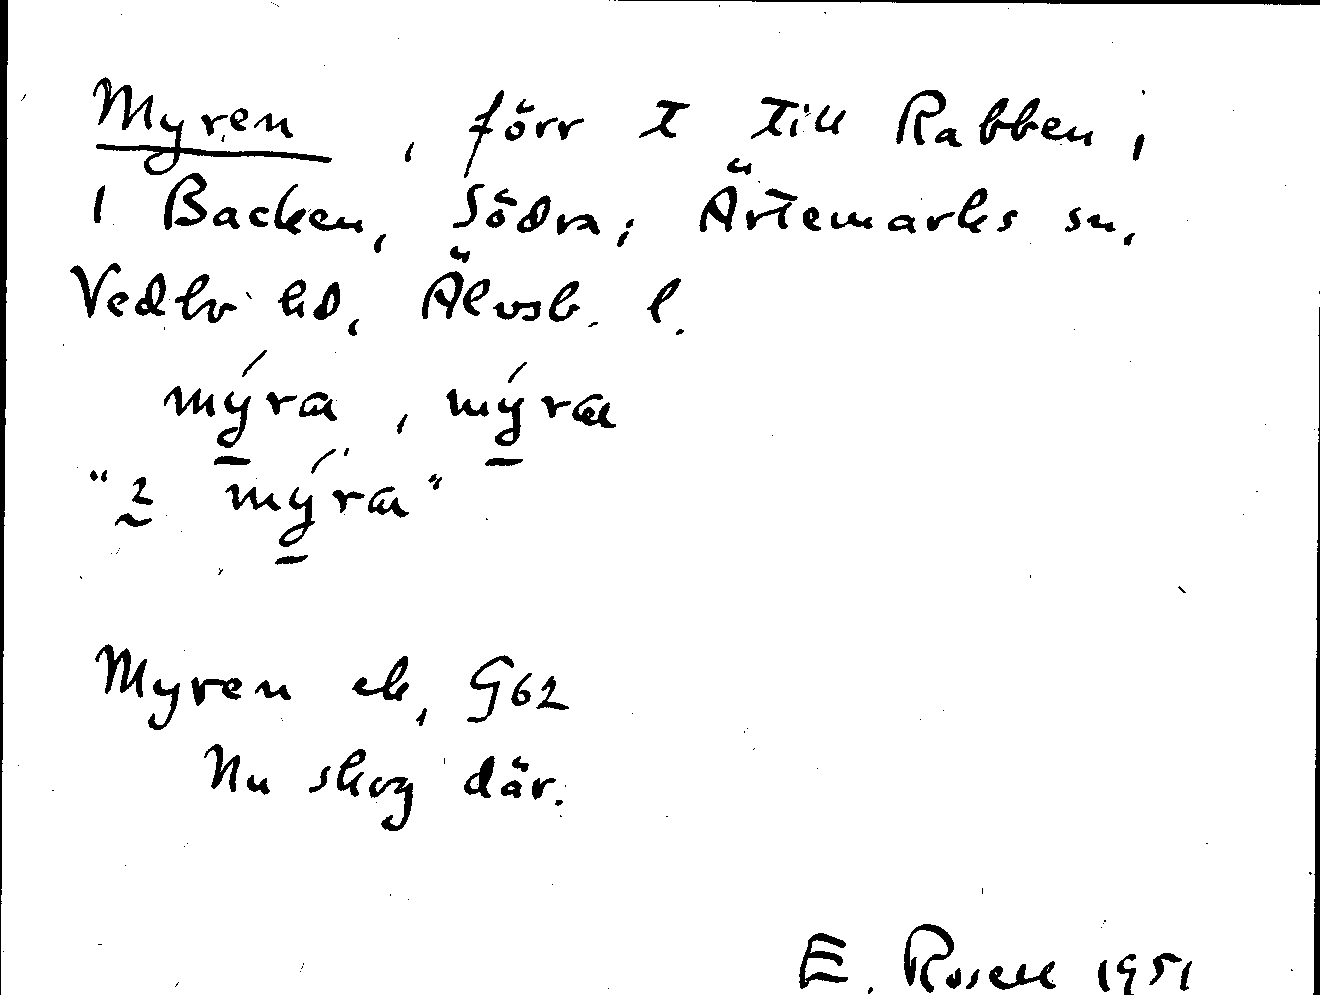 Myren, förr t till Rabben,
1 Backen, Södra; Ärtemarks sn,
Vedbo hd, Älvsb. l.
mýra, mýra
"2 mýra"
Myren ek, G62
Nu skog där.
E. Rosell 1951